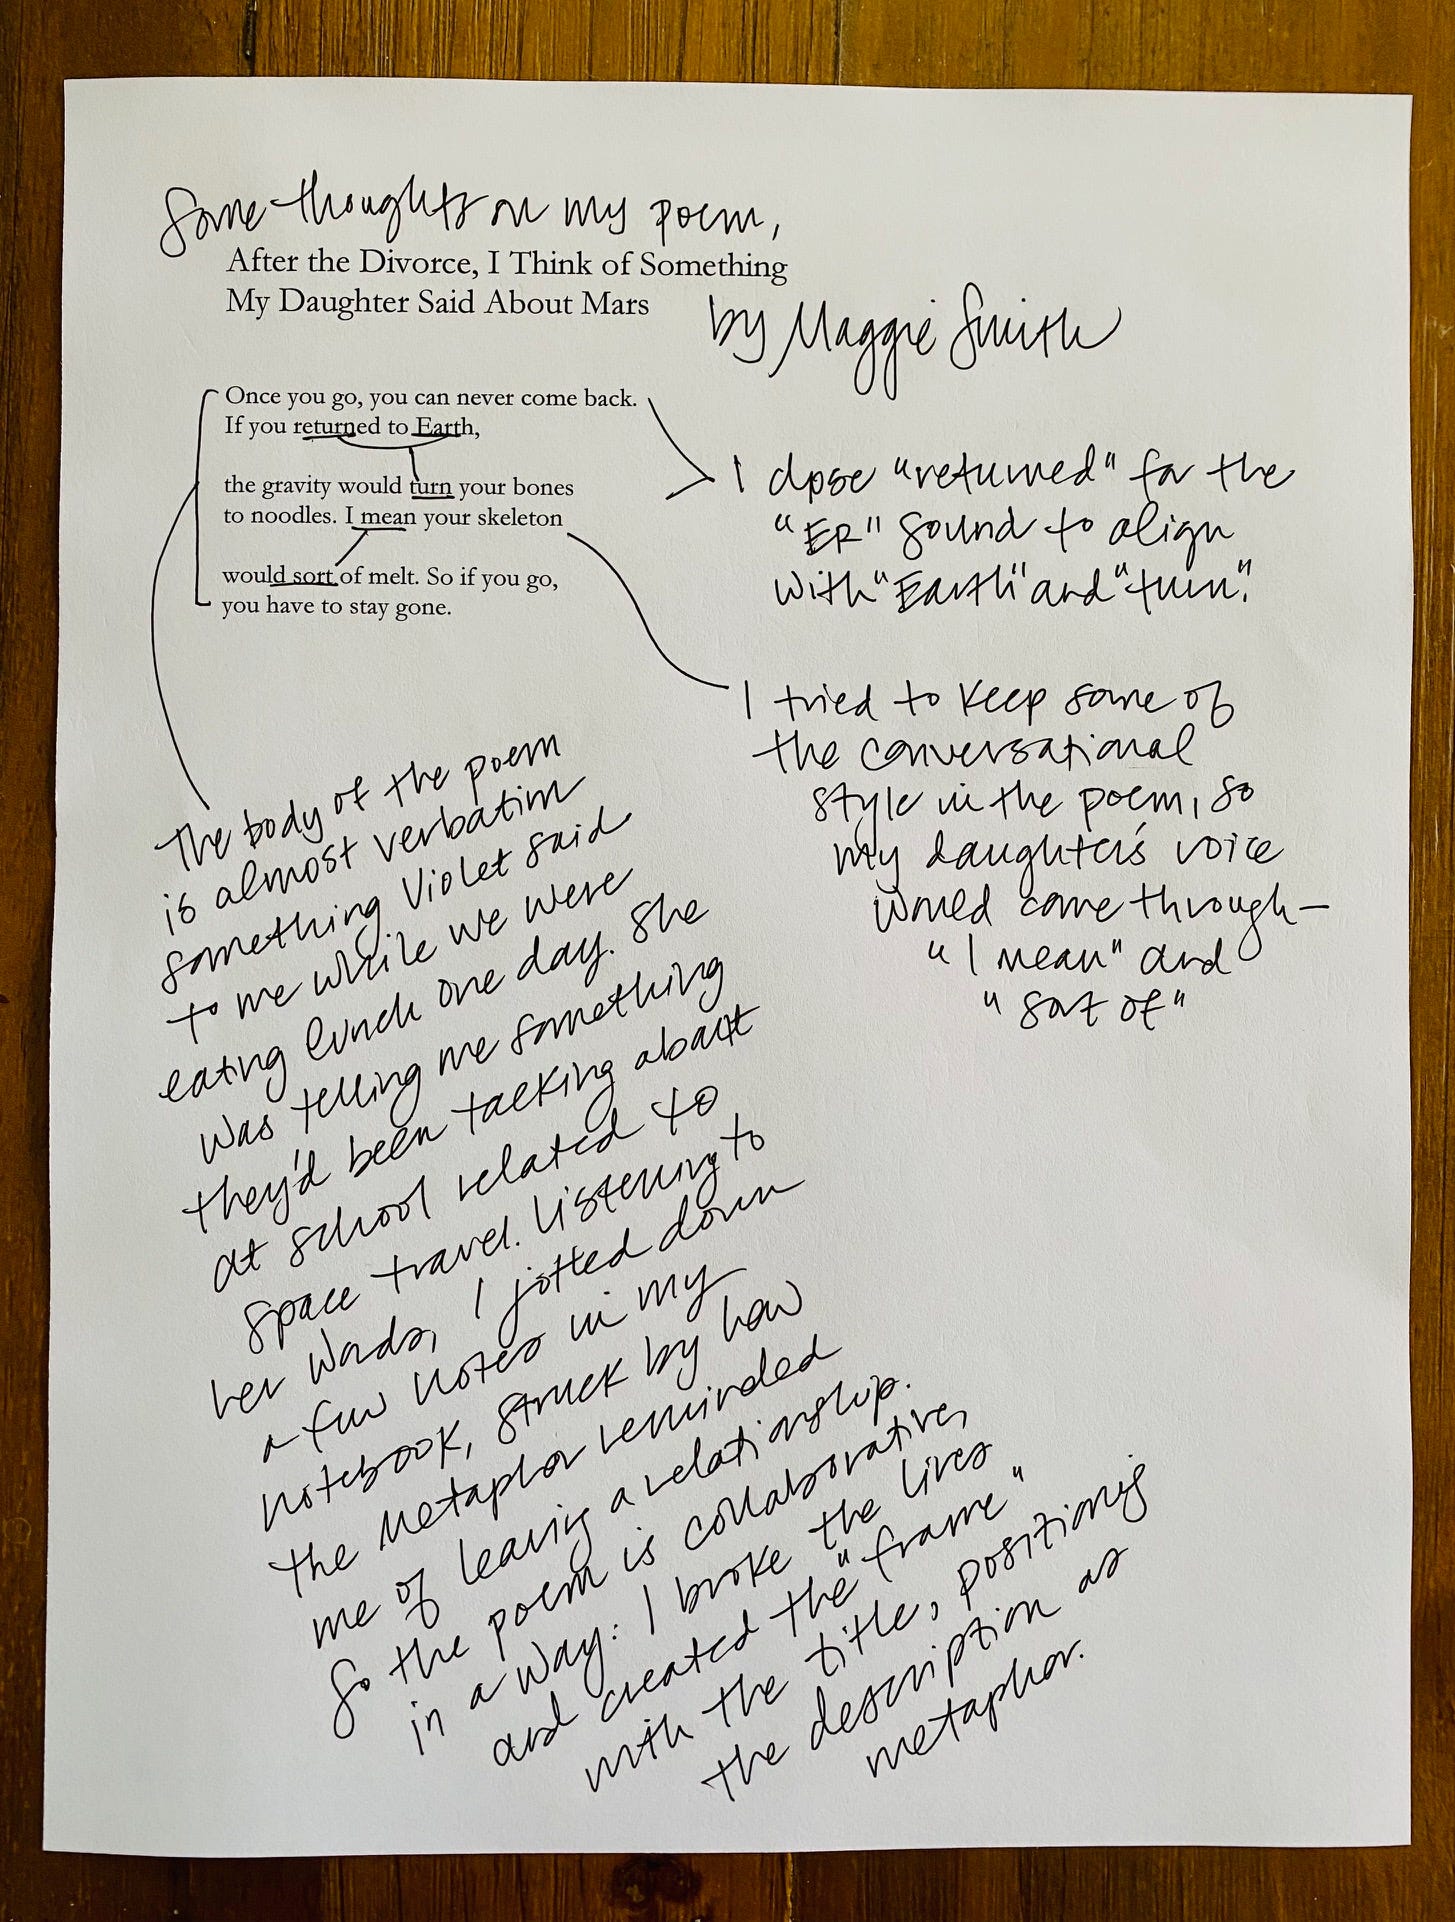 Some thoughts on my poem,
After the Divorce, I Think of Something
My Daughter Said About Mars
by Maggie Smith
Once you go, you can never come back.
If you returned to Earth,
the gravity would turn your bones
to noodles. I mean your skeleton
would sort of melt. So if you go,
you have to stay gone.
I chose "returned" for the
"ER" sound to align
with "Earth" and "turn."
I tried to keep some of
the conversational
style in the poem, so
my daughter's voice
would come through—
"I mean" and
"sort of"
The body of the poem
is almost verbatim
something Violet said
to me while we were
eating lunch one day. She
was telling me something
they'd been talking about
at school related to
space travel. Listening to
her words, I jotted down
a few notes in my
notebook, struck by how
the metaphor reminded
me of leaving a relationship.
So the poem is collaborative,
in a way: I broke the lines
and created the "frame"
with the title, positioning
the description as
metaphor.